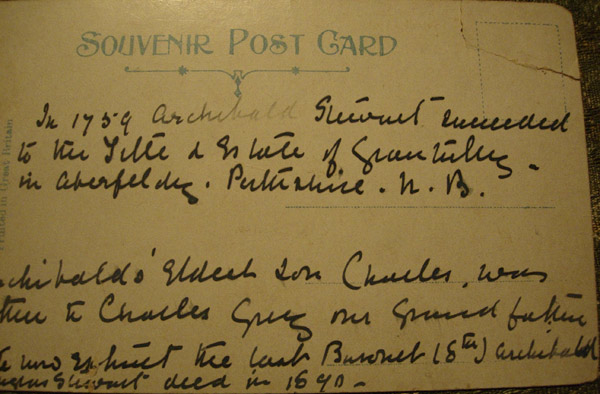 SOUVENIR POST CARD
Printed in Great Britain
In 1759 Archibald Stewart succeeded
to the Title & Estate of Grantully -
in Aberfeldy. Perthshire. N. B.
chibald's Eldest Son Charles, was
ther to Charles Grey our Grand father
now extinct the last Baronet (8th) Archibald
Stewart died in 1890 -